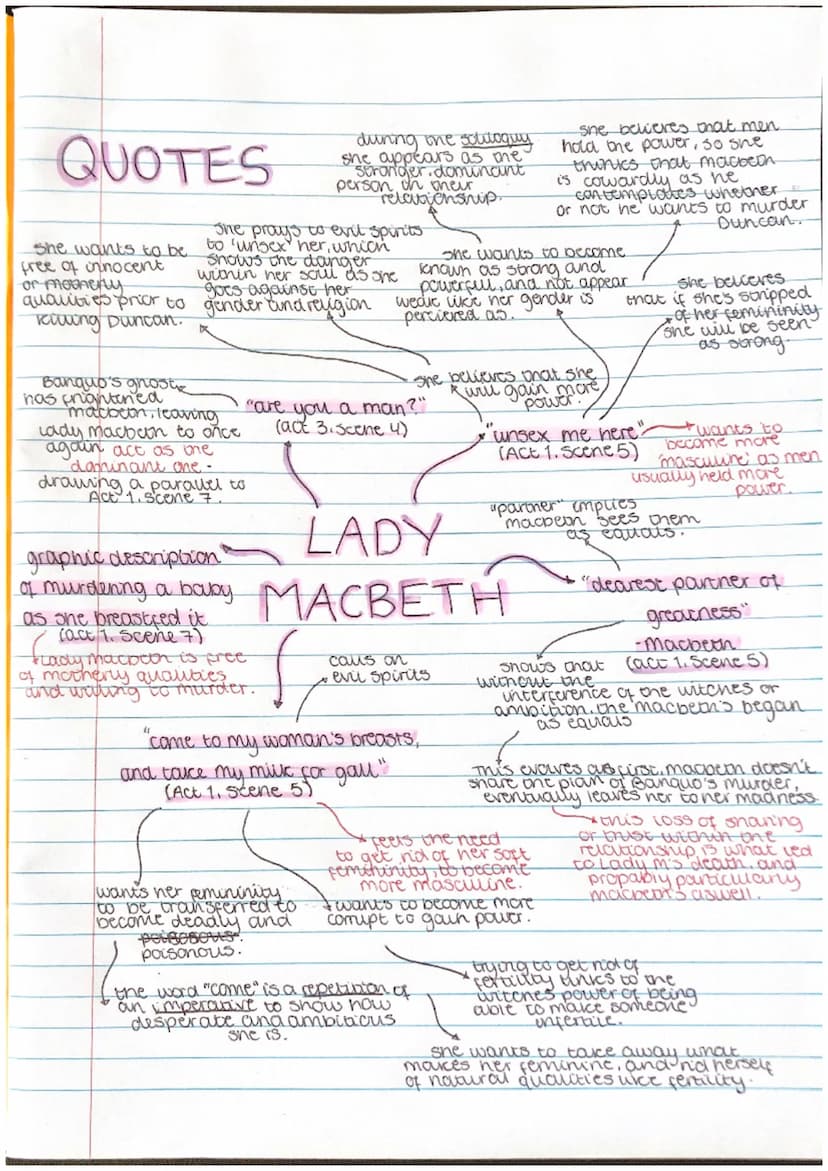 QUOTES
during the soliloquy
she appears as the
stronger, dominant
person in their
relationship.
she believes that men
hold the power, so she
thinks that macbeth
is cowardly as he
contemplates whether
or not he wants to murder
Duncan.
she wants to be
free of innocent
or motherly
qualities prior to
killing Duncan.
she prays to evil spirits
to 'unsex' her, which
shows the danger
within her soul as she
goes against her
gender and religion
she wants to become
known as strong and
powerful, and not appear
weak like her gender is
percieved as.
she believes
that if she's stripped
of her femininity
she will be seen
as strong.
she believes that she
will gain more
power.
Banquo's ghost
has frightened
macbeth, leaving
lady macbeth to once
again act as the
dominant one -
drawing a parallel to
Act 1, Scene 7.
"are you a man?"
(act 3, scene 4)
"unsex me here"
(Act 1, Scene 5)
wants to
become more
'masculine' as men
usually held more
power.
"partner" implies
macbeth sees them
as equals.
LADY
MACBETH
graphic description
of murdering a baby
as she breastfed it
(act 1, scene 7)
Lady macbeth is free
of motherly qualities
and willing to murder.
"dearest partner of
greatness"
-Macbeth
(act 1, scene 5)
calls on
evil spirits
shows that
without the
interference of the witches or
ambition, the macbeth's began
as equals
"come to my woman's breasts,
and take my milk for gall"
(Act 1, scene 5)
This evolves as first, macbeth doesn't
share the plan of Banquo's murder,
eventually leaves her to her madness
this loss of sharing
or trust within the
relationship is what led
to Lady M's death, and
propably particularly
macbeth's aswell.
feels the need
to get rid of her soft
femininity, to become
more masculine.
wants her femininity
to be transferred to
become deadly and
poisosous.
poisonous.
wants to become more
corrupt to gain power.
the word "come" is a repetition of
an imperative to show how
desperate and ambitious
she is.
trying to get rid of
fertility links to the
witches power of being
able to make someone
infertile.
she wants to take away what
makes her feminine, and rid herself
of natural qualities like fertility.